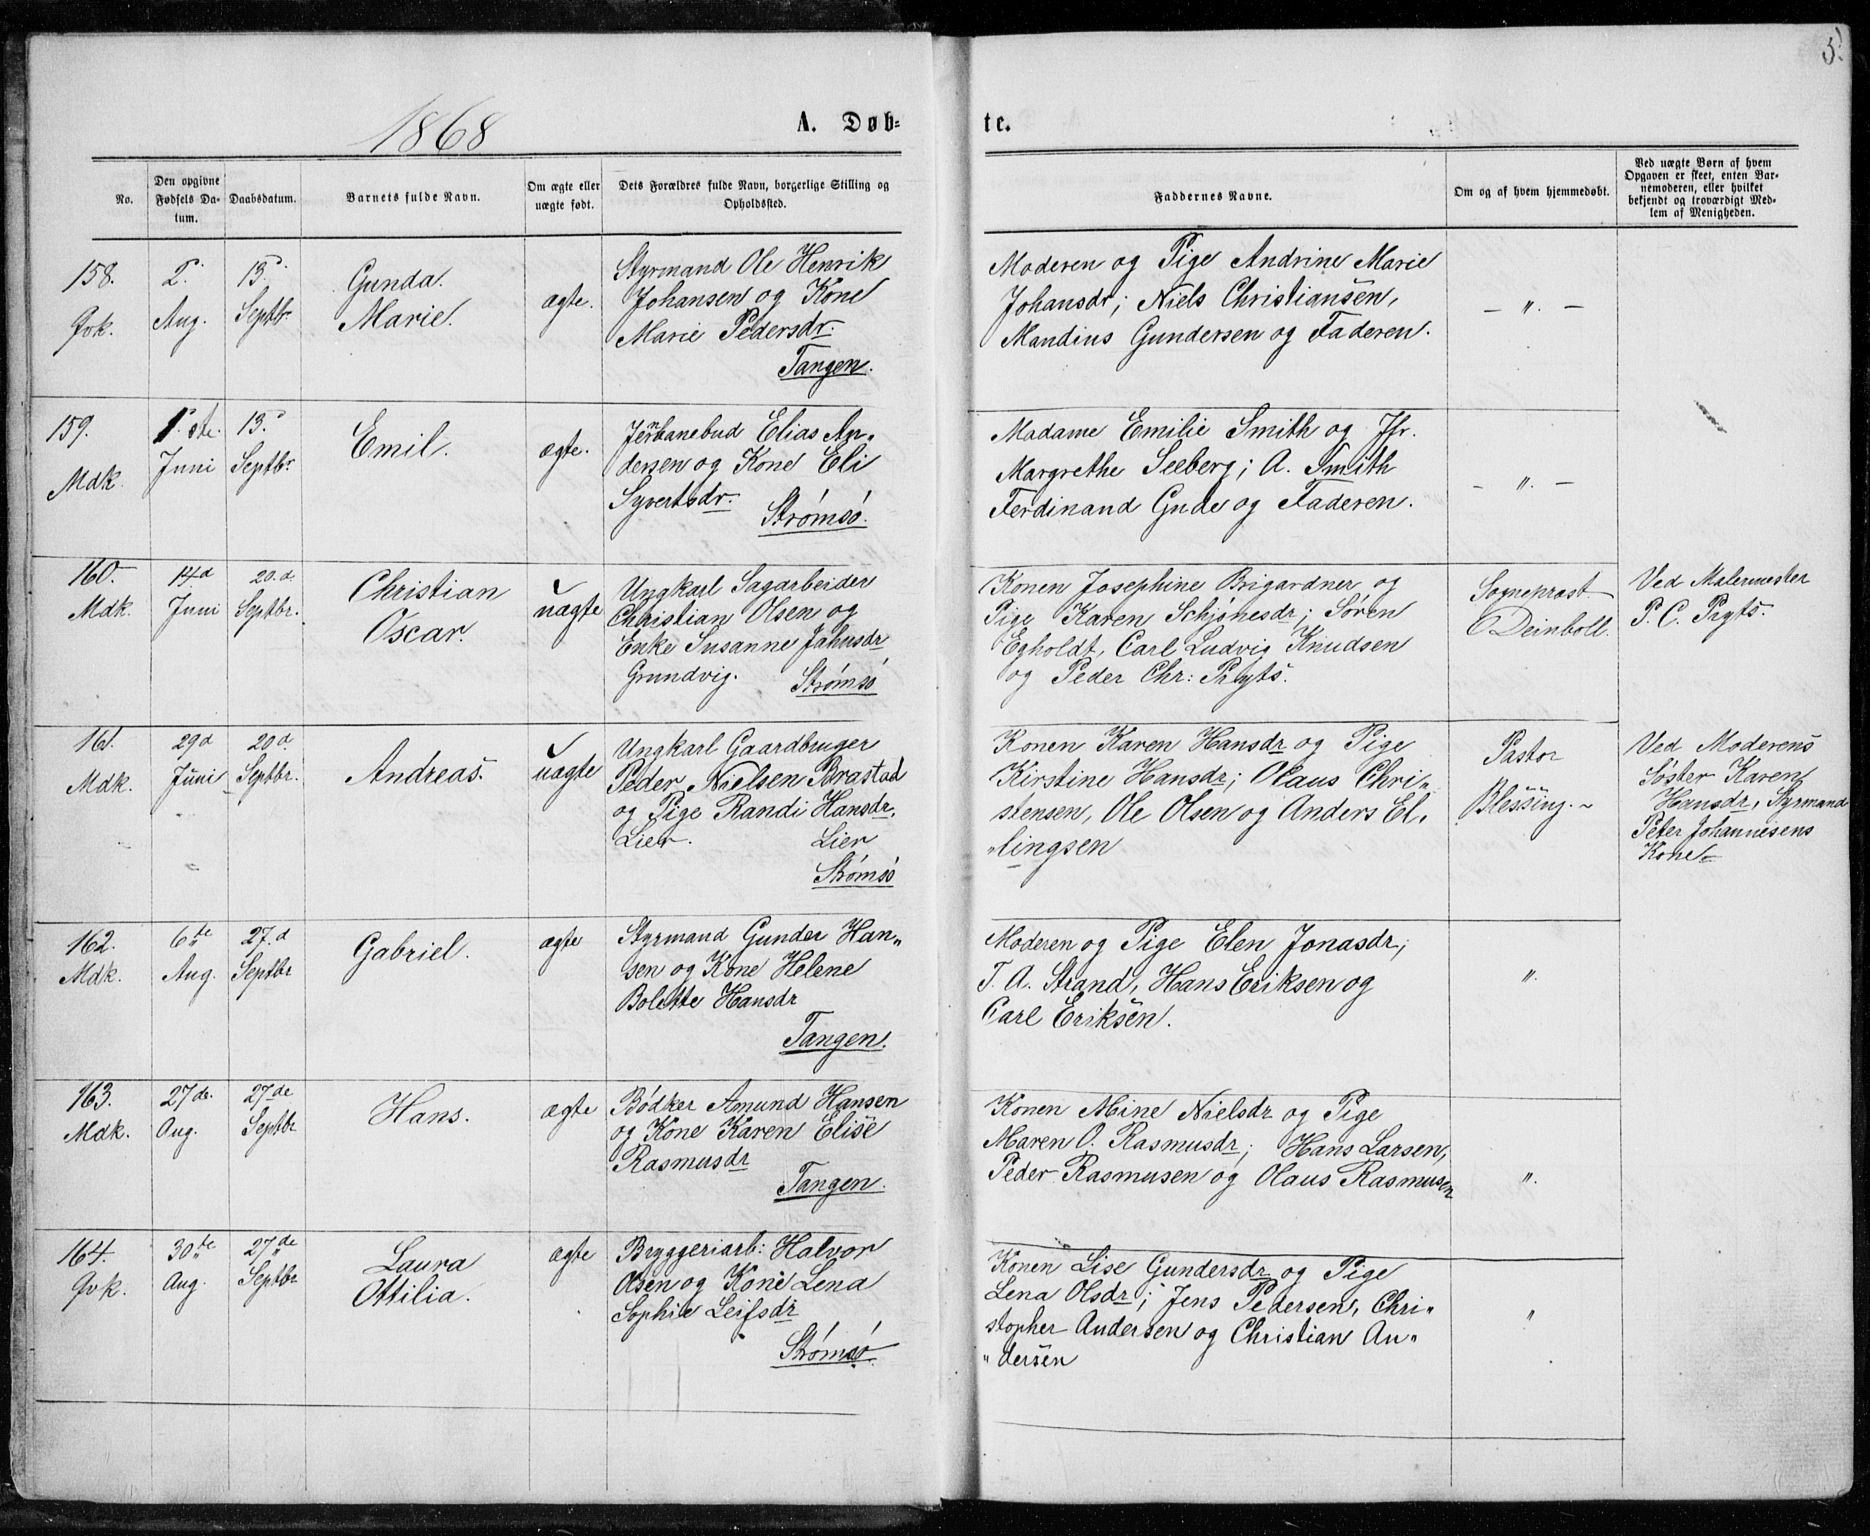 5
1868
A. Døb-
te.
No.
Den opgivne
Fødsels Da-
tum.
Daabsdatum.
Barnets fulde Navn.
Om ægte eller
uægte født.
Dets Forældres fulde Navn, borgerlige Stilling og
Opholdsted.
Faddernes Navne.
Om og af hvem hjemmedøbt.
Ved uægte Børn af hvem
Opgaven er skeet, enten Bar-
nemoderen, eller hvilket
bekjendt og troværdigt Med-
lem af Menigheden.
158.
Qvk.
2.
Aug.
13.
Septbr.
Gunda
Marie.
ægte.
Styrmand Ole Henrik
Johansen og Kone
Marie Pedersdr.
Tangen.
Moderen og Pige Andrine Marie
Johansdr; Niels Christiansen,
Mandius Gundersen og Faderen.
- " . -
159.
Mdk.
1. ste.
Juni
13.
Septbr.
Emil.
ægte.
Jernbanebud Elias An-
dersen og Kone Eli
Syvertsdr.
Strømsö.
Madame Emilie Smith og Jfr.
Margrethe Seeberg; A. Smith
Ferdinand Gude og Faderen.
- " . -
160.
Mdk
14d
Juni
20.d.
Septbr.
Christian
Oscar.
uægte
Ungkarl Sagarbeider
Christian Olsen og
Enke Susanne Jahnsdr
Grundvig.
Strømsö
Konen Josephine Brigardner og
Pige Karen Schjønesdr; Søren
Egholdt, Carl Ludvig Knudsen
og Peder Chr: Prgyts.
Sogneprost
Deinboll.
Ved Malermester
P. C. Prgyts.
161.
Mdk.
29d
Juni
20d.
Septbr.
Andreas.
uægte
Ungkarl Gaardbruger
Peder Nielsen Brastad
og Pige Randi Hansdr.
Lier.
Lier
Strømsö
Konen Karen Hansdr og Pige
Kirstine Hansdr; Olaus Chri-
stensen, Ole Olsen og Anders El-
"lingsen
Pastor
Blessing. ~
Ved Moderens
Søster Karen
Hansdr, Styrmand
Peter Johannesens
Kone
162.
Mdk.
6te
Aug.
27.d
Septbr
Gabriel.
ægte
Styrmand Gunder Han-
sen og Kone Helene
Bolette Hansdr
Tangen.
Moderen og Pige Elen Jonasdr,
T. A. Strand, Hans Eriksen og
Carl Eriksen.
".
163.
Mdk.
27de.
Aug.
27de
Septbr
Hans.
ægte
Bödker Amund Hansen
og Kone Karen Elise
Rasmusdr
Tangen.
Konen Mine Nielsdr og Pige
Maren O. Rasmusdr; Hans Larsen,
Peder Rasmusen og Olaus Rasmusen
".
164.
Qvk.
30te
Aug.
27de
Septbr
Laura
Ottilia.
ægte
Bryggeriarb: Halvor
Olsen og Kone Lena
Sophie Leifsdr
Strömsö.
Konen Lise Gundersdr og Pige
Lena Olsdr; Jens Pedersen, Chri-
stopher Andersen og Christian An-
"dersen
"